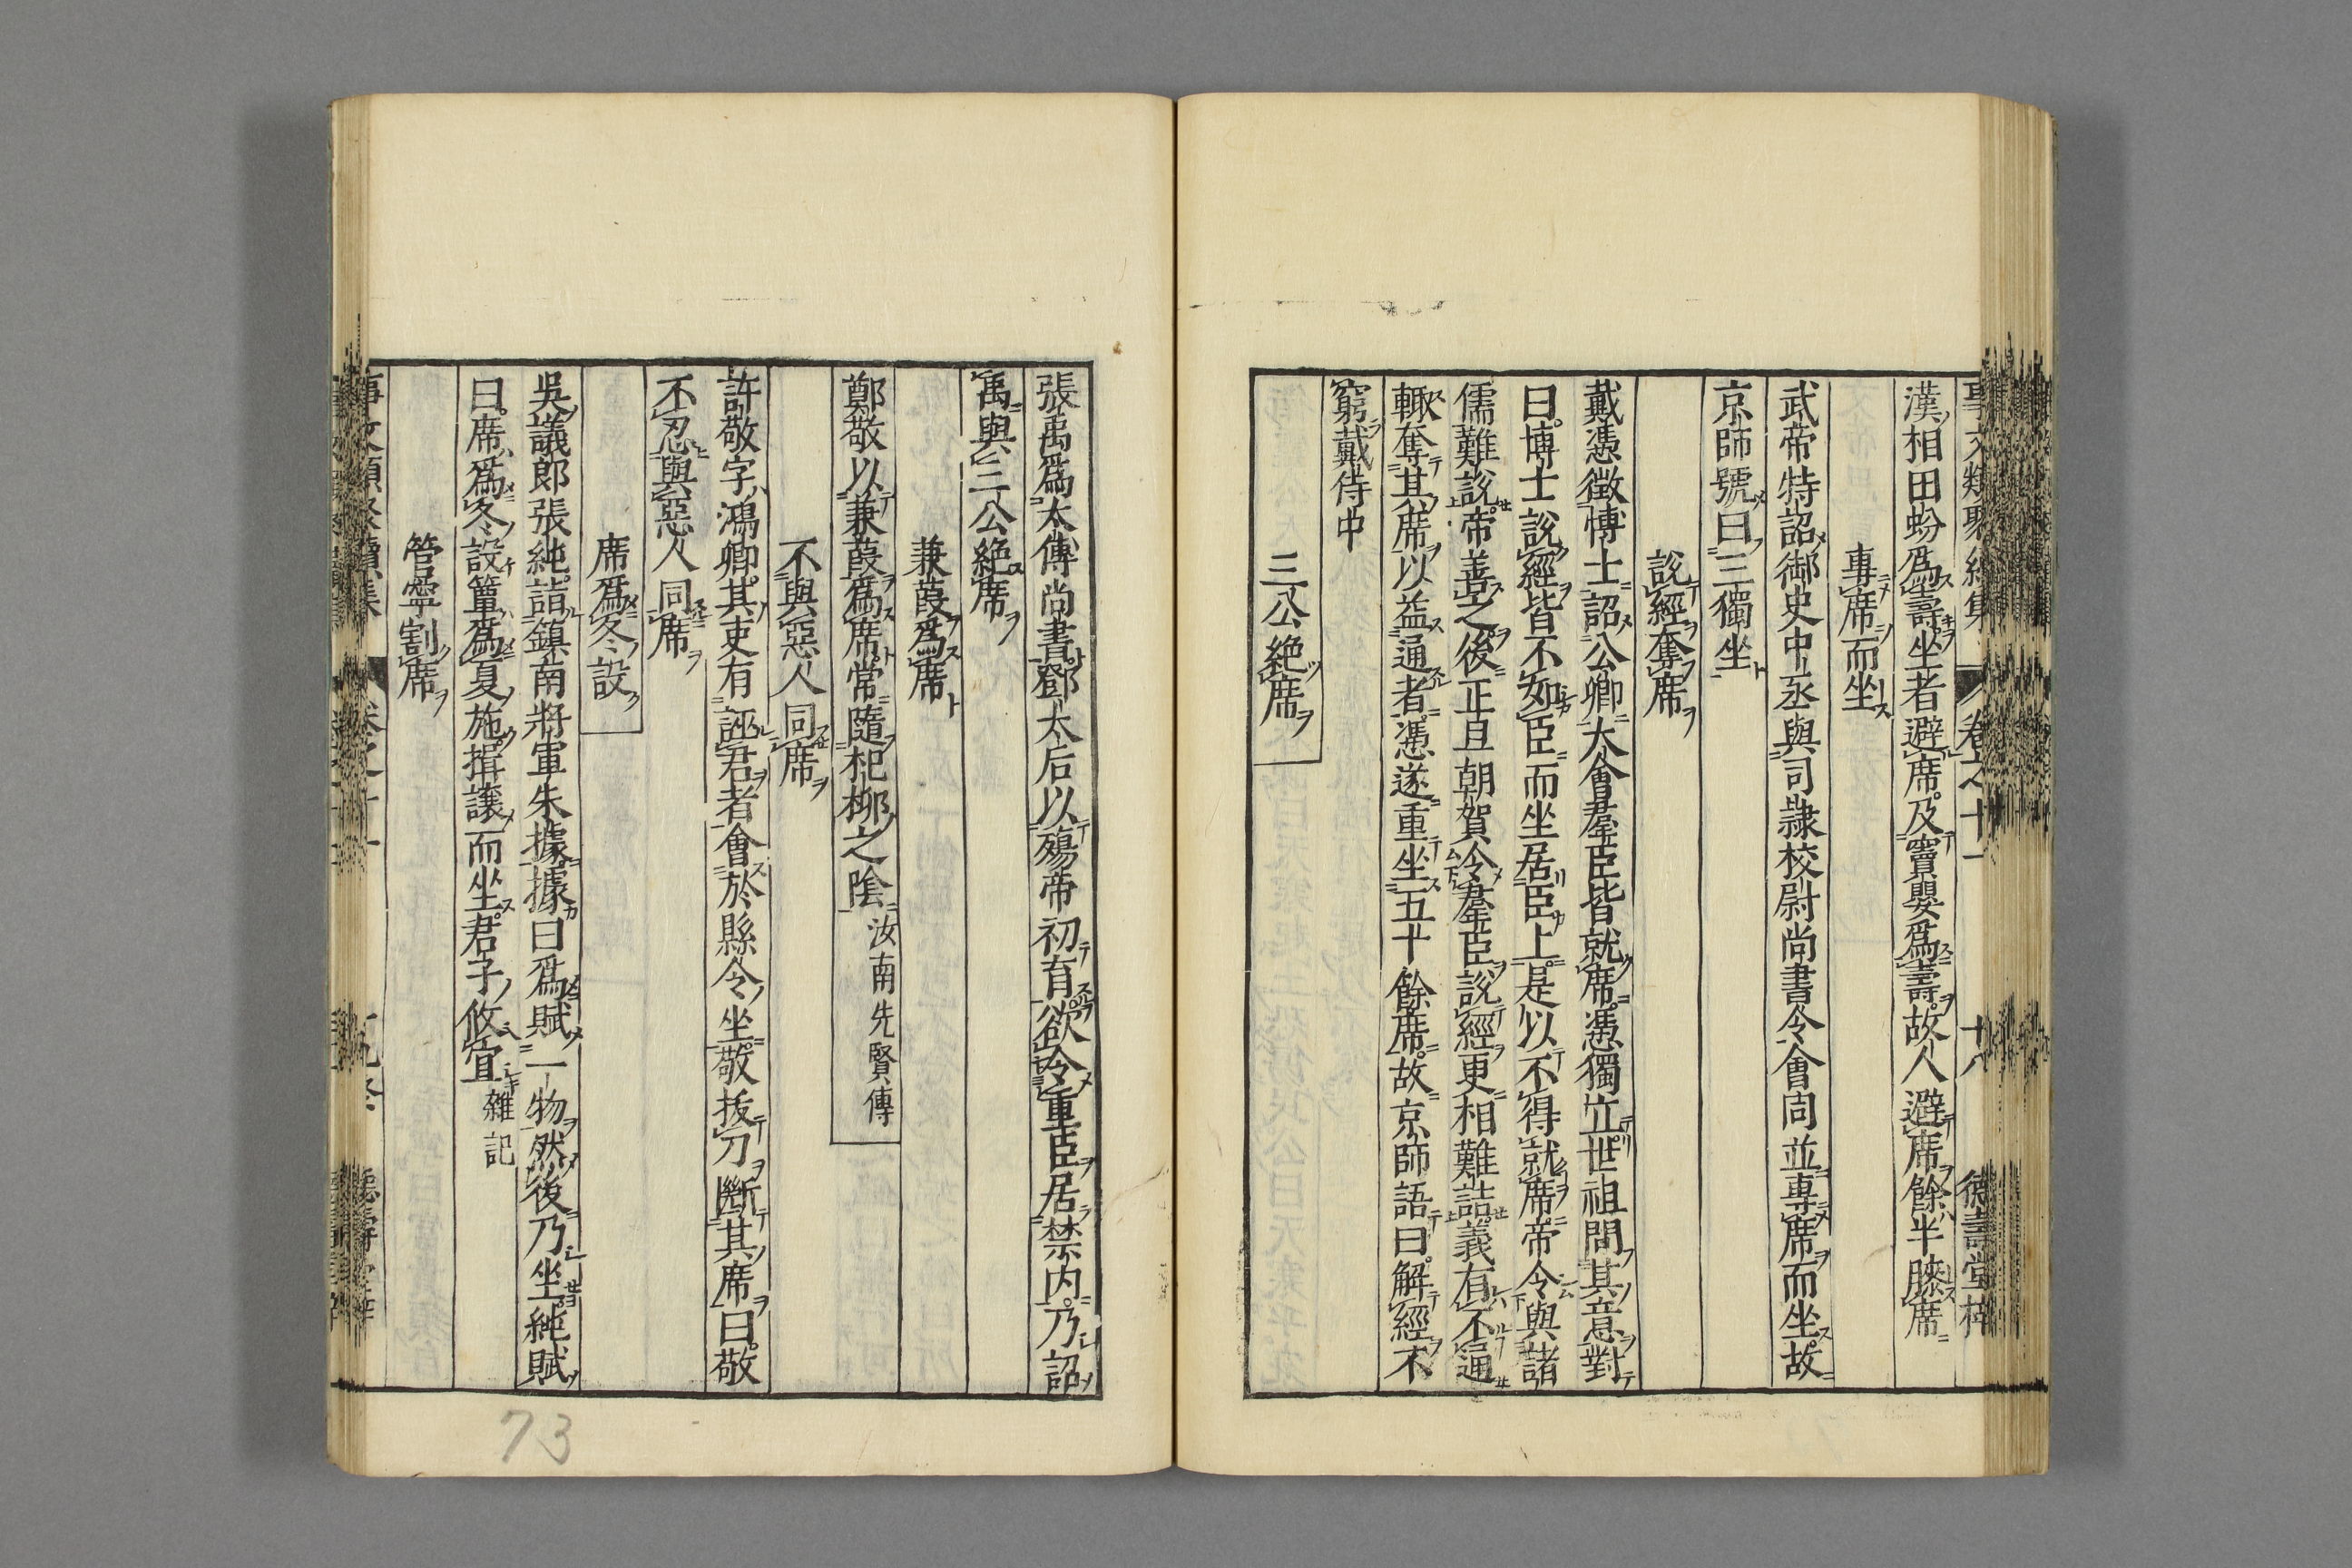 事文類聚續集 卷之十一 十八 德壽堂梓
漢相田蚡爲壽坐者避席及竇嬰爲壽故人避席餘半膝席
專席而坐
武帝特詔御史中丞與司隷校尉尚書令會同並專席而坐故
京師號曰三獨坐
說經奪席
戴憑徵博士詔公卿大會羣臣皆就席憑獨立世祖問其意對
曰博士說經皆不如臣而坐居臣上是以不得就席帝令與諸
儒難說帝善之後正旦朝賀令羣臣說經更相難詰義有不通
輙奪其席以益通者憑遂重坐五十餘席故京師語曰解經不
窮戴侍中
三公絶席
張禹爲太傅尚書鄧太后以殤帝初育欲令重臣居禁内乃詔
禹與三公絶席
兼葭爲席
鄭敬以兼葭爲席常隨杞柳之陰汝南先賢傳
不與惡人同席
許敬字鴻卿其吏有誣君者會於縣令坐敬拔刀斷其席曰敬
不忍與惡人同席
席爲冬設
吳議郎張純詣鎮南將軍朱據據曰爲賦一物然後乃坐純賦
曰席爲冬設簟爲夏施揖讓而坐君子攸宜雜記
管寧割席
事文類聚續集 卷之十一
73